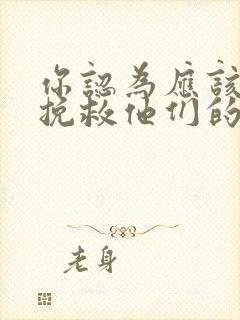 你認為應該
挽救他们的
老身